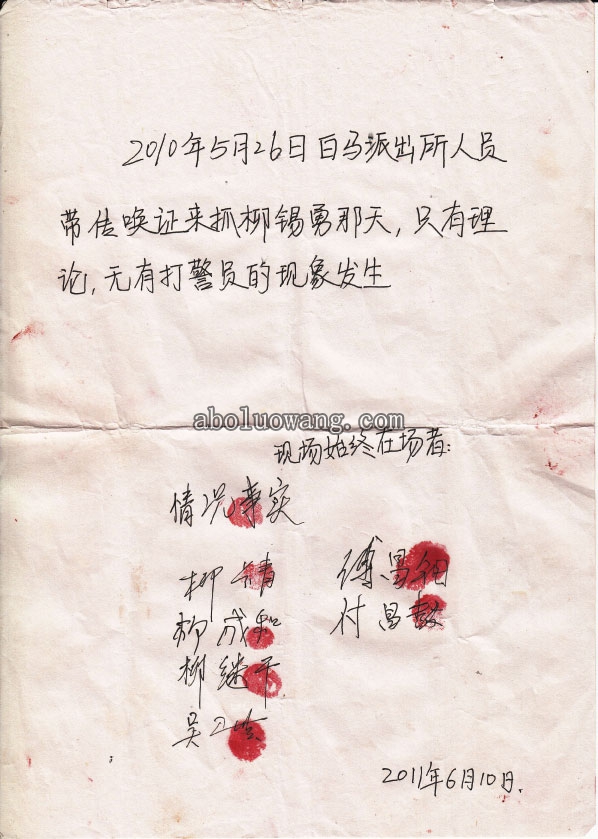 2010年5月26日白马派出所人员
带传唤证来抓柳锡勇那天，只有理
论，无有打警员的现象发生
aboluowang.com
现场始终在场者：
情况事实
柳靖
傅昌细
柳成和
付昌
柳继平
吴
2011年6月10日.